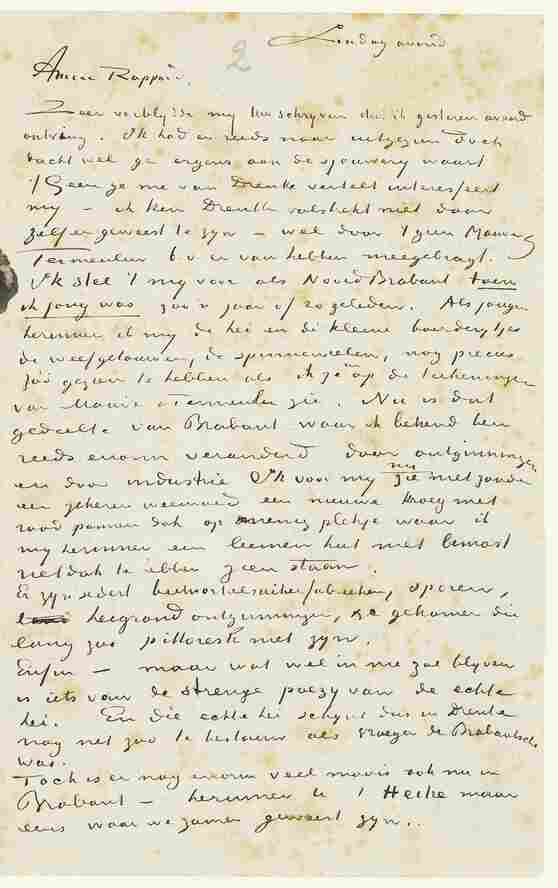 2
Zondag avond
Amice Rappard,
Zeer verblijdde my Uw schryven dat ik gisteren avond
ontving. Ik had er reeds naar uitgezien doch
dacht wel ge ergens aan de sjouwery waart
't Geen ge me van Drenthe vertelt interesseert
my – ik ken Drenthe volstrekt niet door
zelf er geweest te zyn – wel door 't geen Mauve &
Termeulen b.v. er van hebben meegebragt.
Ik stel 't my voor als Noord Brabant toen
ik jong was zoo'n jaar of 20 geleden. Als jongen
herinner ik my de hei en de kleine boerderytjes
de weefgetouwen, de spinnewielen, nog precies
zoo gezien te hebben als ik ze nu op de teekeningen
van Mauve & Termeulen zie. Nu is dat
gedeelte van Brabant waar ik bekend ben
reeds enorm veranderd door ontginningen
en door industrie Ik voor my zie nu niet zonder
een zekeren weemoed een nieuwe kroeg met
rood pannen dak op menig plekje waar ik
my herinner een leemen hut met bemost
rietdak te hebben zien staan.
Er zyn sedert beetwortelsuikerfabrieken, sporen,
heigrond ontginningen, &c gekomen die
lang zoo pittoresk niet zyn.
Enfin – maar wat wel in me zal blyven
is iets van de strenge poezy van de echte
hei. En die echte hei schynt dus in Drenthe
nog net zoo te bestaan als vroeger de Brabantsche
was.
Toch is er nog enorm veel moois ook nu in
Brabant – herinner U 't Heike maar
eens waar we zamen geweest zyn..